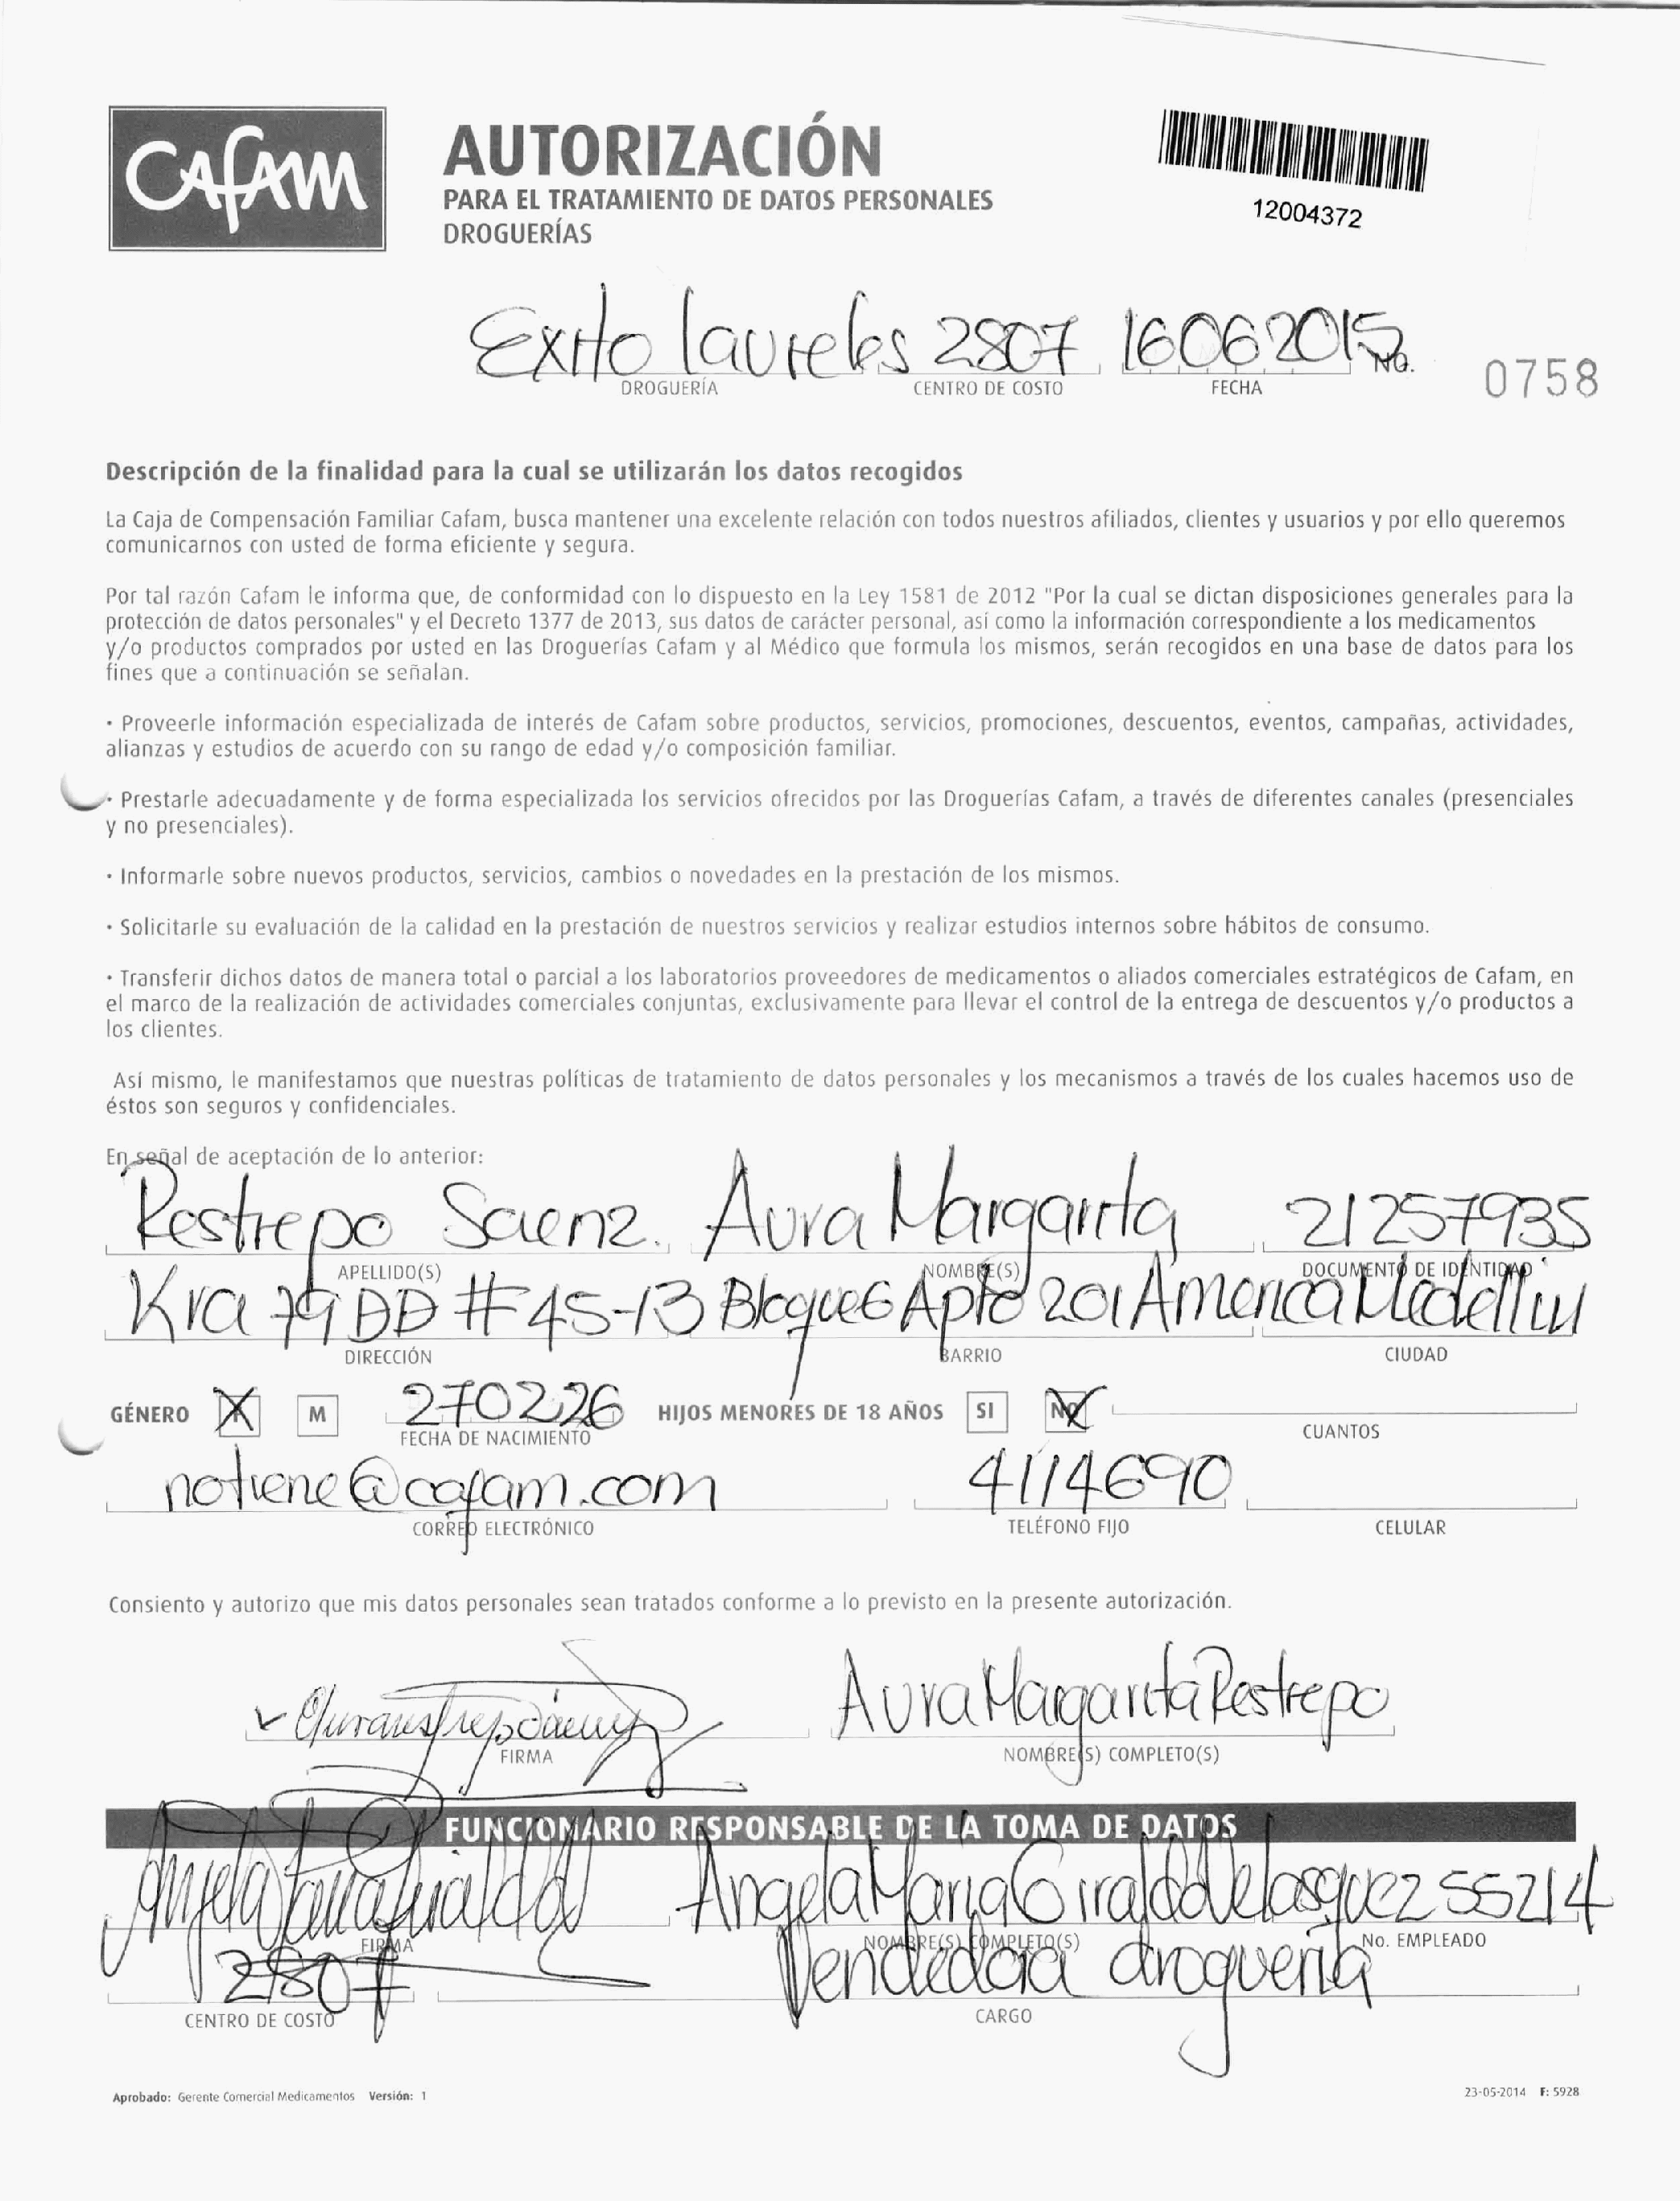 CAFAM
AUTORIZACIÓN
PARA EL TRATAMIENTO DE DATOS PERSONALES
DROGUERÍAS
12004372
Exito laureles 2807 16062015 No. 0758
DROGUERÍA CENTRO DE COSTO FECHA
Descripción de la finalidad para la cual se utilizarán los datos recogidos
La Caja de Compensación Familiar Cafam, busca mantener una excelente relación con todos nuestros afiliados, clientes y usuarios y por ello queremos
comunicarnos con usted de forma eficiente y segura.
Por tal razón Cafam le informa que, de conformidad con lo dispuesto en la Ley 1581 de 2012 "Por la cual se dictan disposiciones generales para la
protección de datos personales" y el Decreto 1377 de 2013, sus datos de carácter personal, así como la información correspondiente a los medicamentos
y/o productos comprados por usted en las Droguerías Cafam y al Médico que formula los mismos, serán recogidos en una base de datos para los
fines que a continuación se señalan.
• Proveerle información especializada de interés de Cafam sobre productos, servicios, promociones, descuentos, eventos, campañas, actividades,
alianzas y estudios de acuerdo con su rango de edad y/o composición familiar.
• Prestarle adecuadamente y de forma especializada los servicios ofrecidos por las Droguerías Cafam, a través de diferentes canales (presenciales
y no presenciales).
• Informarle sobre nuevos productos, servicios, cambios o novedades en la prestación de los mismos.
• Solicitarle su evaluación de la calidad en la prestación de nuestros servicios y realizar estudios internos sobre hábitos de consumo.
• Transferir dichos datos de manera total o parcial a los laboratorios proveedores de medicamentos o aliados comerciales estratégicos de Cafam, en
el marco de la realización de actividades comerciales conjuntas, exclusivamente para llevar el control de la entrega de descuentos y/o productos a
los clientes.
Así mismo, le manifestamos que nuestras políticas de tratamiento de datos personales y los mecanismos a través de los cuales hacemos uso de
éstos son seguros y confidenciales.
En señal de aceptación de lo anterior:
Restrepo Saenz. Aura Margarita 21257935
APELLIDO(S) NOMBRE(S) DOCUMENTO DE IDENTIDAD
Kra 79DD #45-13 Bloque6 Apto 201 America Medellin
DIRECCIÓN BARRIO CIUDAD
GÉNERO X M 270226 HIJOS MENORES DE 18 AÑOS SI NO
FECHA DE NACIMIENTO CUANTOS
notiene@cafam.com 4114690
CORREO ELECTRÓNICO TELÉFONO FIJO CELULAR
Consiento y autorizo que mis datos personales sean tratados conforme a lo previsto en la presente autorización.
Aura Margarita Restrepo
FIRMA NOMBRE(S) COMPLETO(S)
FUNCIONARIO RESPONSABLE DE LA TOMA DE DATOS
Angela Maria Giraldo Velasquez 55214
FIRMA NOMBRE(S) COMPLETO(S) No. EMPLEADO
2807 Vendedora drogueria
CENTRO DE COSTO CARGO
Aprobado: Gerente Comercial Medicamentos Versión: 1 23-05-2014 F: 5928